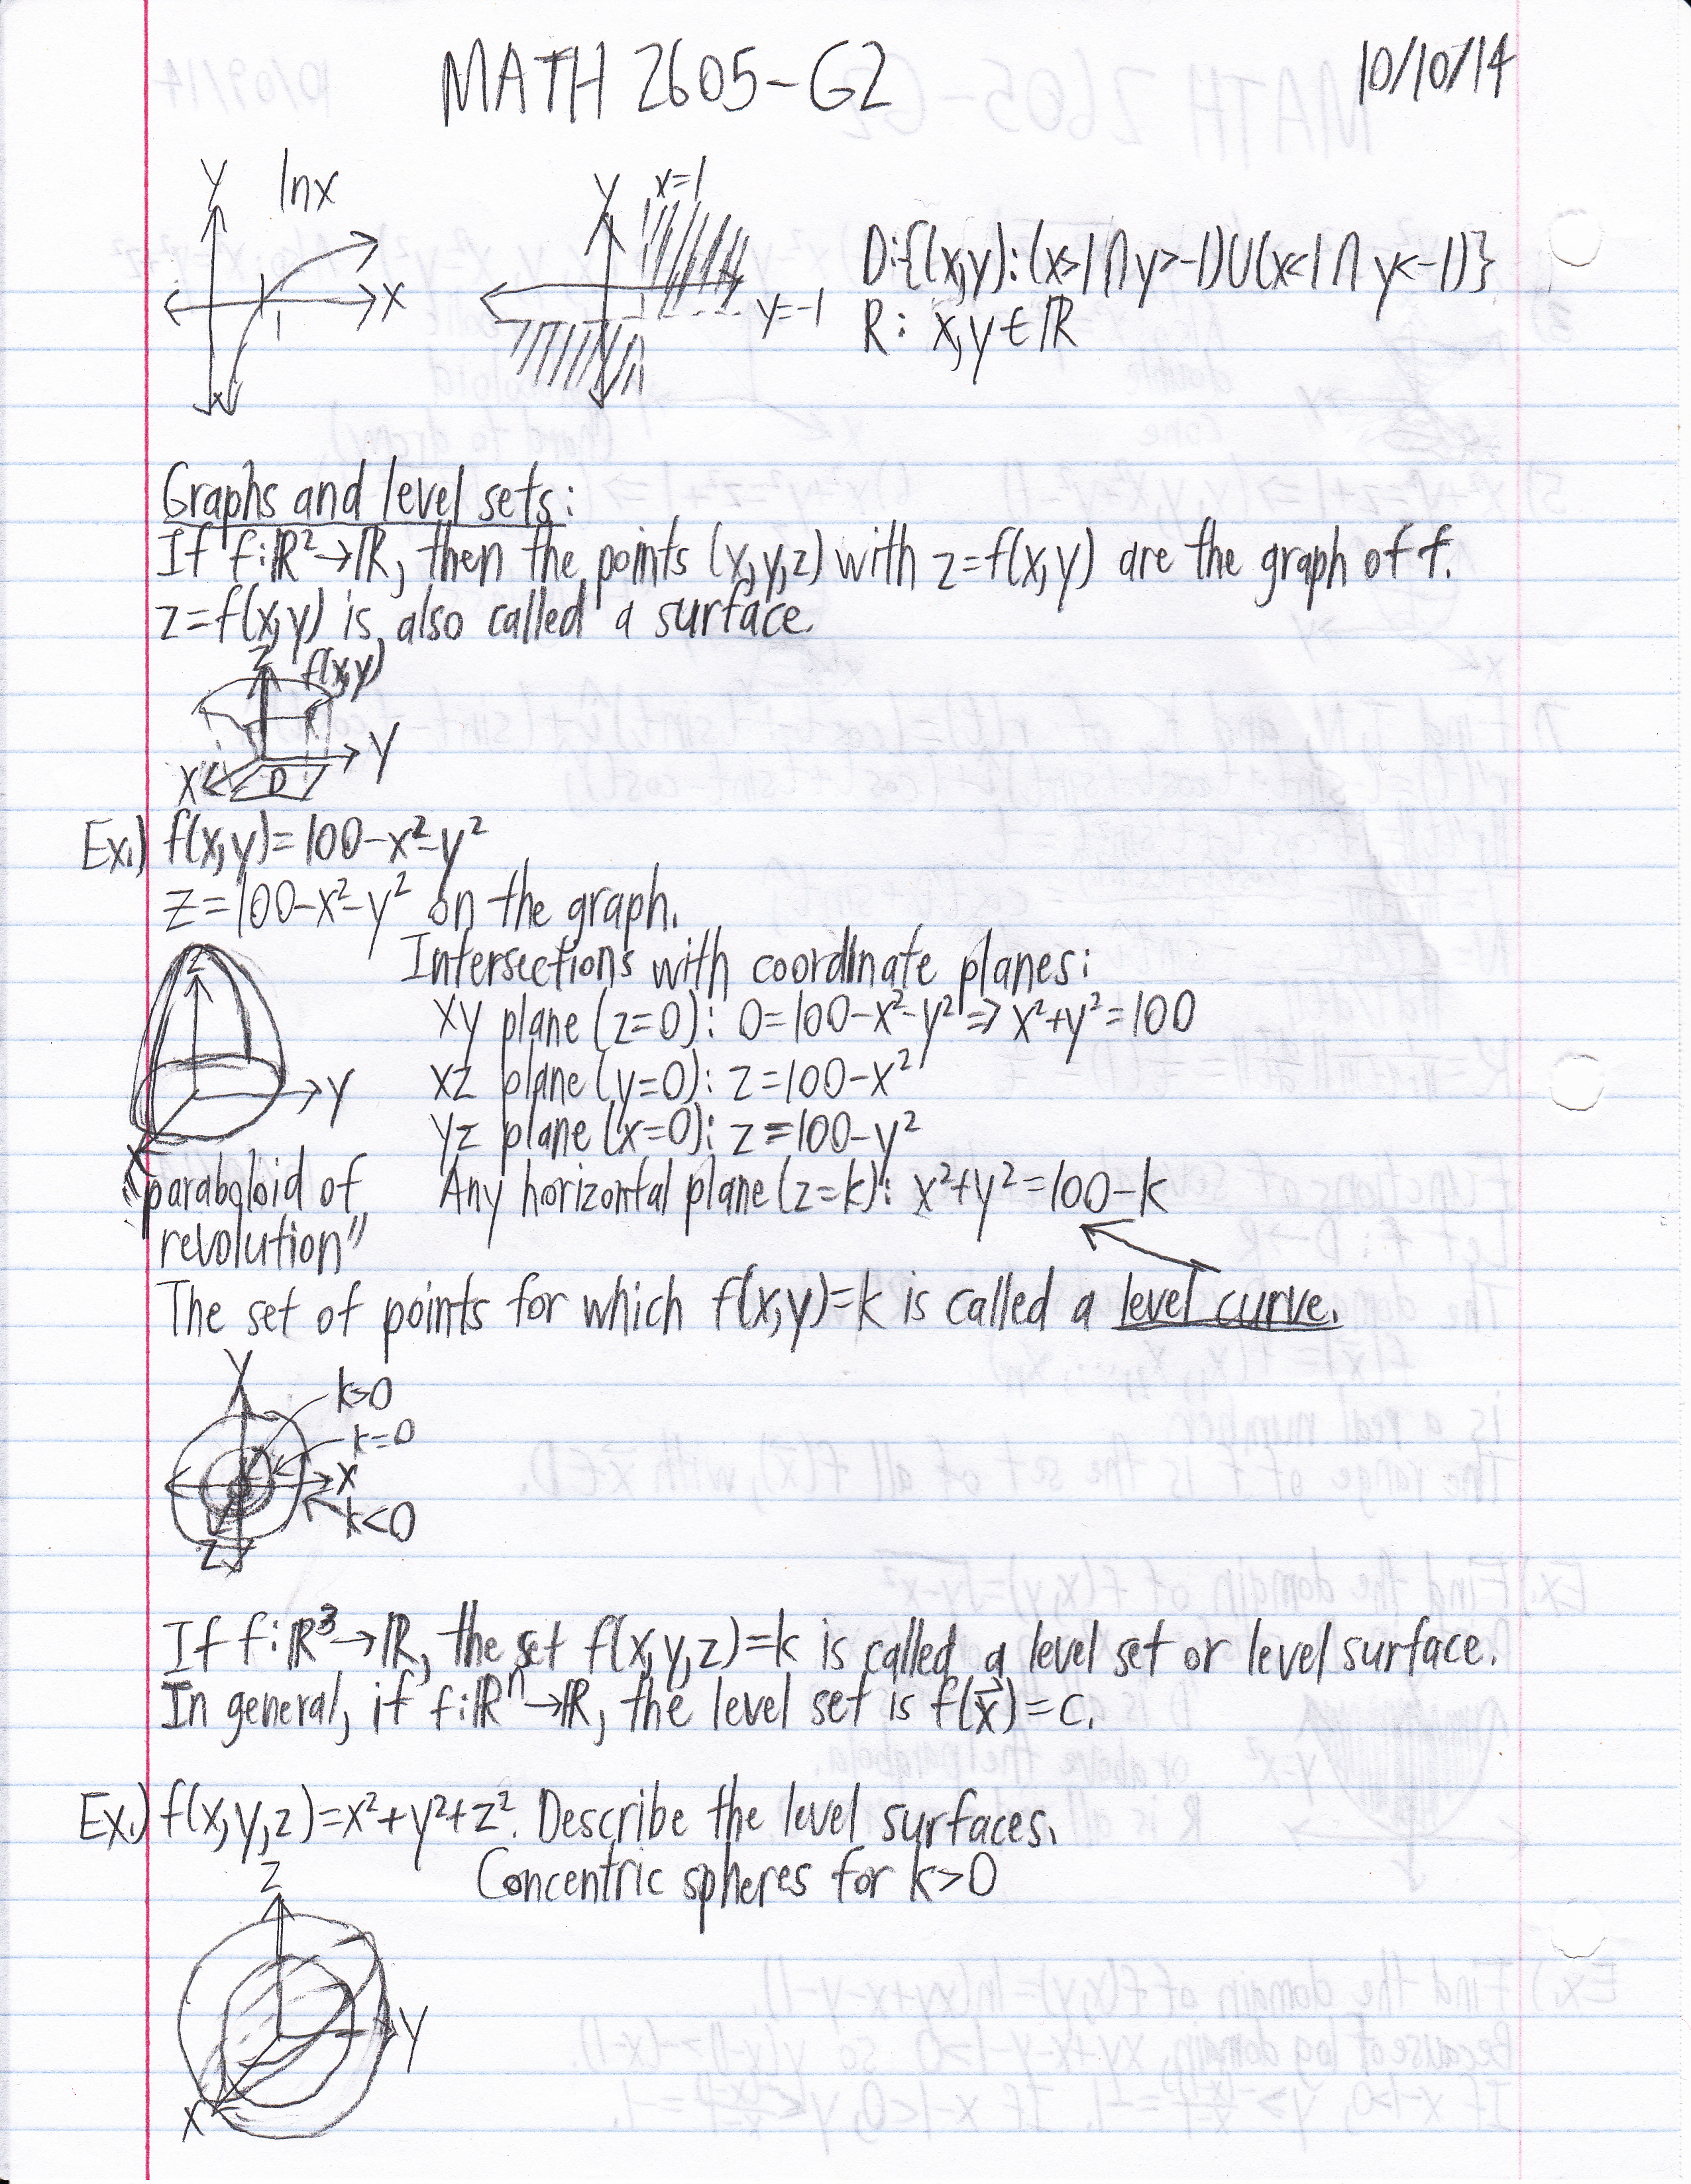 MATH 2605-G2
10/10/14
y
lnx
x
1
y
x=1
y=-1
D:{(x,y):(x>1∩y>-1)∪(x<1∩y<-1)}
R: x,y∈ℝ
Graphs and level sets:
If f:ℝ²→ℝ, then the points (x,y,z) with z=f(x,y) are the graph of f.
z=f(x,y) is also called a surface.
z
f(x,y)
y
x
D
Ex.) f(x,y)=100-x²-y²
z=100-x²-y² on the graph.
Intersections with coordinate planes:
xy plane (z=0): 0=100-x²-y²⇒x²+y²=100
xz plane (y=0): z=100-x²
yz plane (x=0): z=100-y²
Any horizontal plane (z=k): x²+y²=100-k
z
y
x
"paraboloid of
revolution"
The set of points for which f(x,y)=k is called a level curve.
y
k>0
k=0
x
k<0
z
If f:ℝ³→ℝ, the set f(x,y,z)=k is called a level set or level surface.
In general, if f:ℝⁿ→ℝ, the level set is f(x⃗)=c.
Ex.) f(x,y,z)=x²+y²+z². Describe the level surfaces.
Concentric spheres for k>0
z
y
x